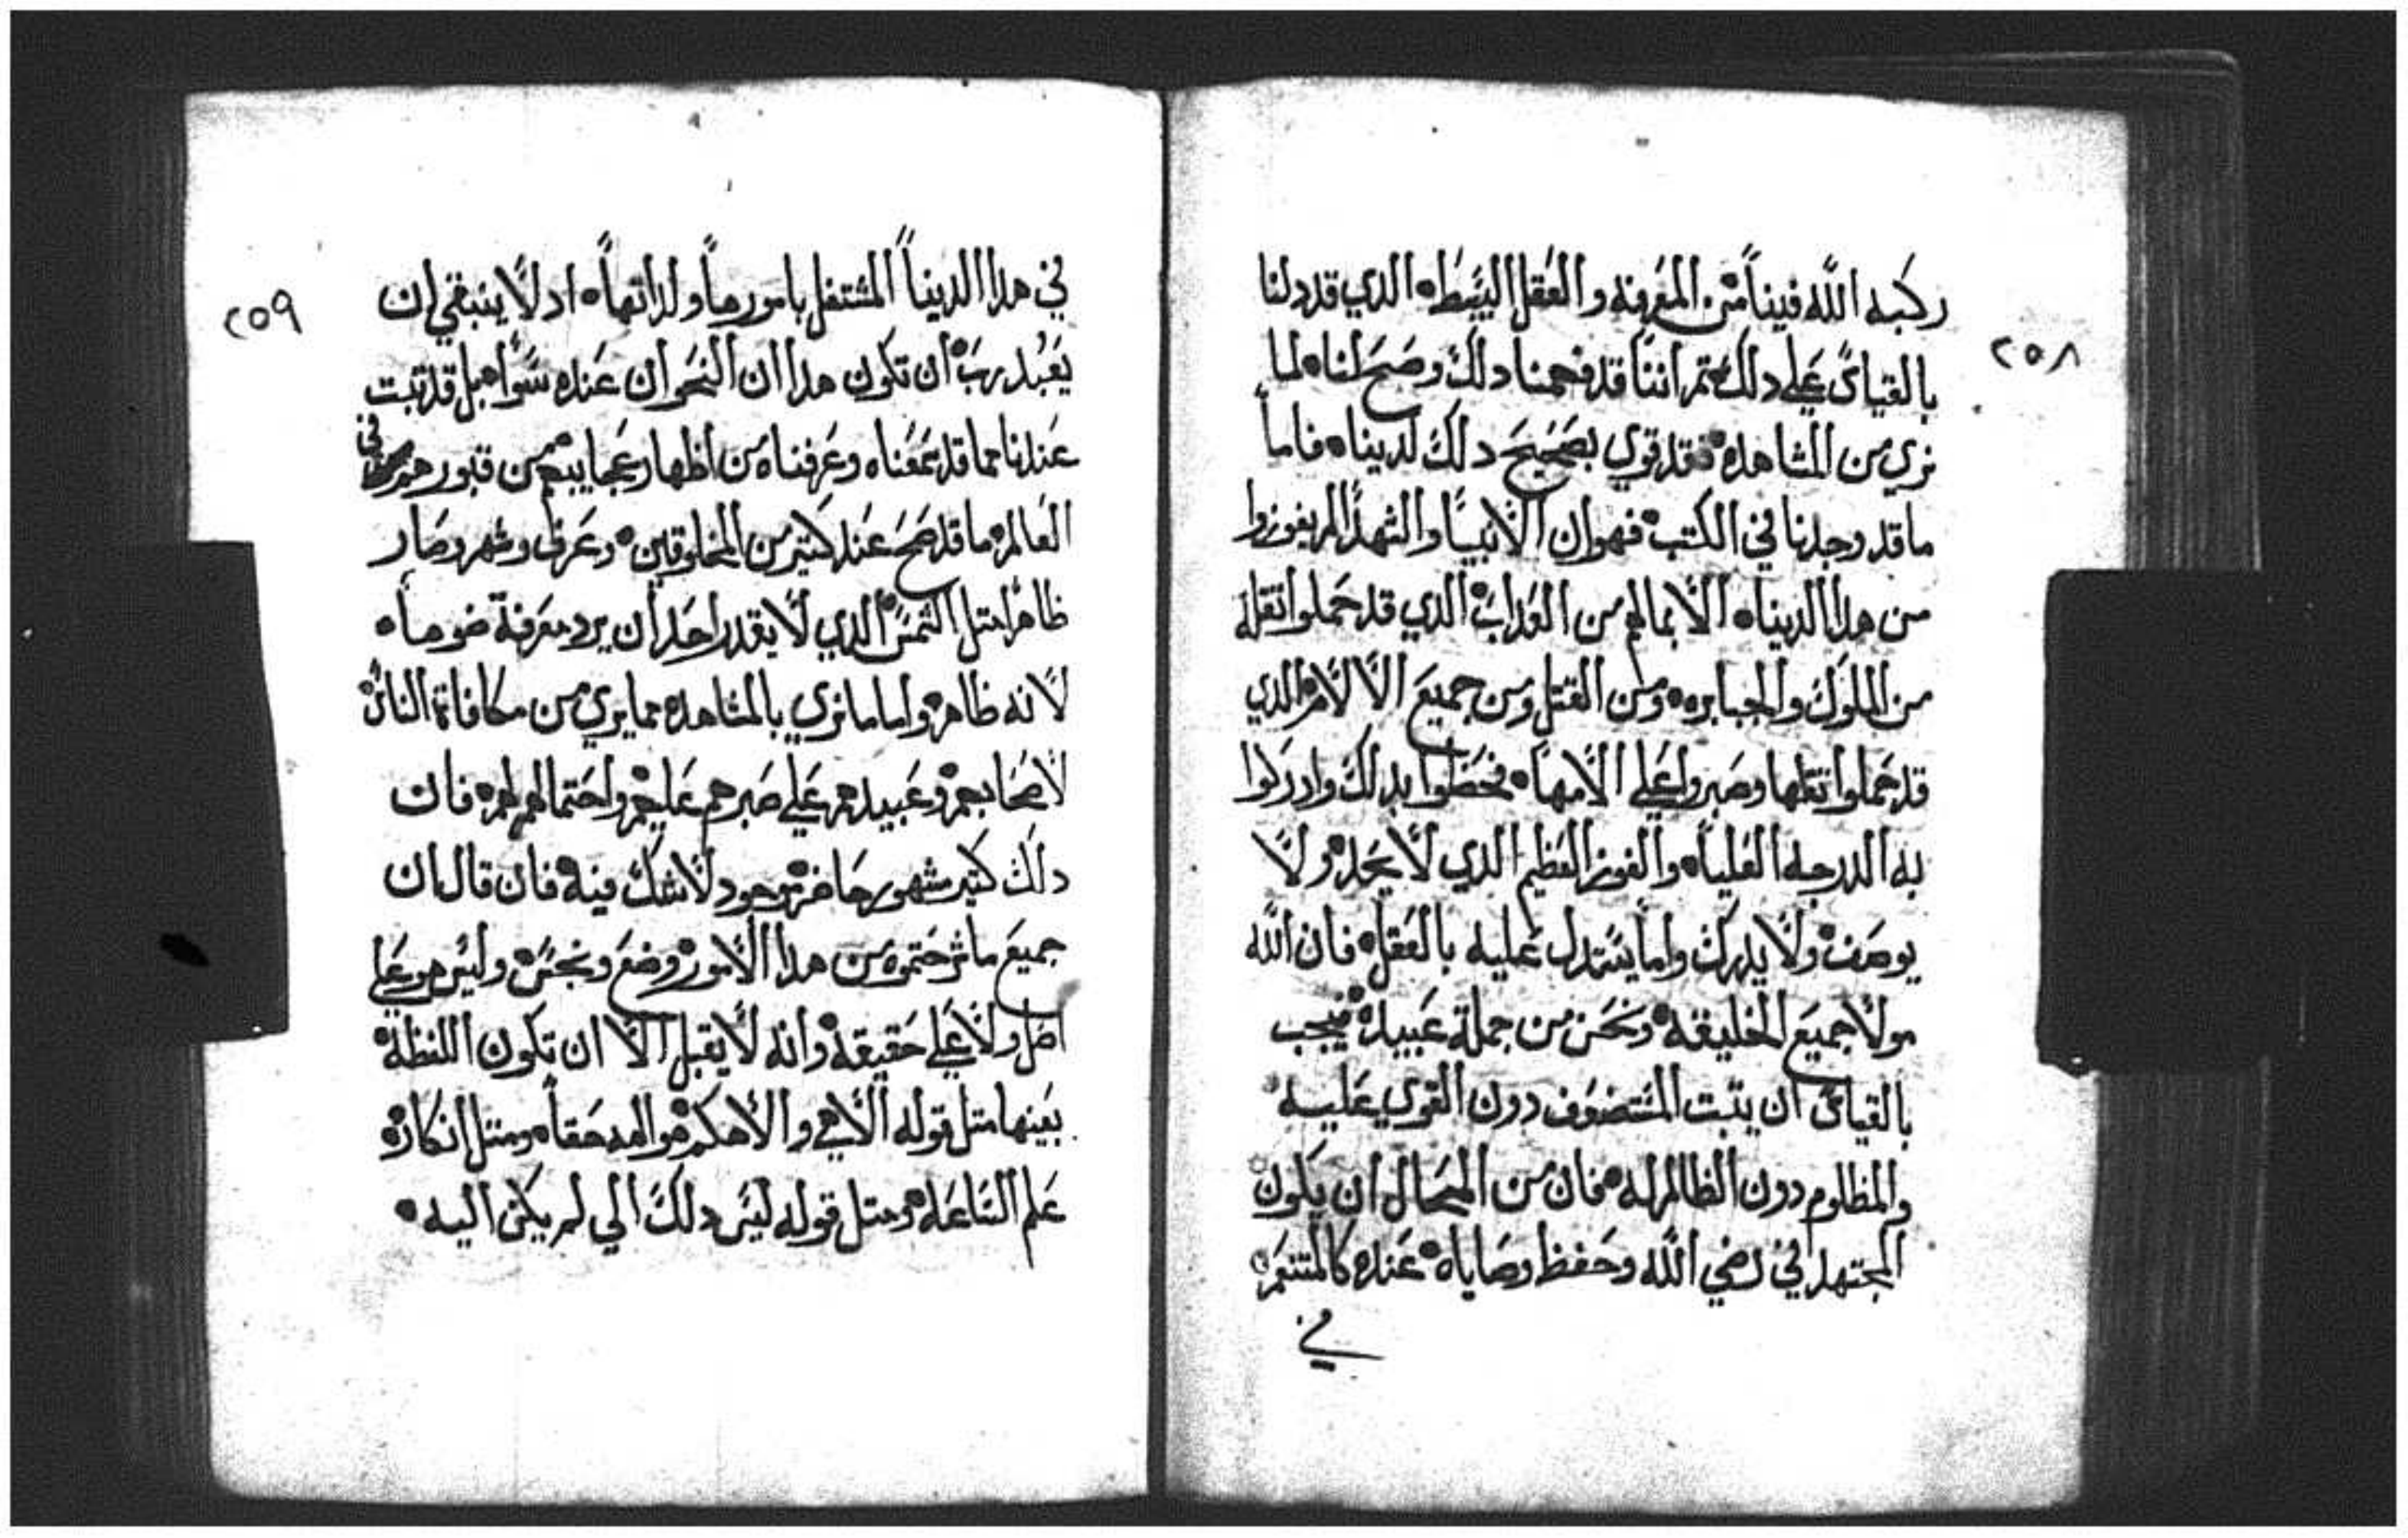 ٢٥٨
ركبه الله فينا من المعرفه والعقل البسيطه الدي قد دلنا
بالقياس علي دلك تم اننا قد فحصنا دلك وصح لنا لما
نري من المشاهده فقد قوي بصحيح دلك لدينا فاما
ما قد وجدنا في الكتب فهو ان الانبيا والشهدا لم يفوزوا
من هدا الدنيا الا بما لهم من العداب الدي قد حملوا تقله
من الملوك والجبابره ومن القتل ومن جميع الالام الدي
قد حملوا تقلها وصبروا علي الامها فحظوا بدلك وادركوا
به الدرجه العليا والفوز العظيم الدي لا يحد ولا
يوصف ولا يدرك واما يستدل عليه بالعقل فان الله
مولا جميع الخليقه ونحن من جملة عبيده فيجب
بالقياس ان يتبت المستضعف دون القوي عليه
والمظلوم دون الظالم له فان من المحال ان يكون
المجتهد في رضي الله وحفظ وصاياه عنده كالمتنعم
في
٢٥٩
في هدا الدنيا المشتغل بامورها ولداتها اد لا ينبغي لمن
يعبد رب ان تكون هدا ان النحو ان عنده سوا بل قد تبت
عندنا مما قد سمعناه وعرفناه من اظهار عجايبهم من قبورهم في
العالم ما قد صح عند كتير من المخلوقين وعرف وشهر وصار
ظاهرا متل الشمس الدي لا يقدر احد ان يرد معرفة ضوها
لانه ظاهر واما ما نري بالمشاهده مما يري من مكافاة الناس
لاصحابهم وعبيدهم علي صبرهم عليهم واحتمالهم لهم فان
دلك كتير مشهور حاضر موجود لا شك فيه فان قال ان
جميع ما شرحتموه من هدا الامور وضع وبخس وليس هو علي
اصل ولا علي حقيقه وانه لا يقبل الا ان تكون اللفظه
بعينها متل قوله الاهي والاهكم هو اله حقا ومتل انكاره
علم الساعه ومتل قوله ليس دلك الي لم يكن اليه